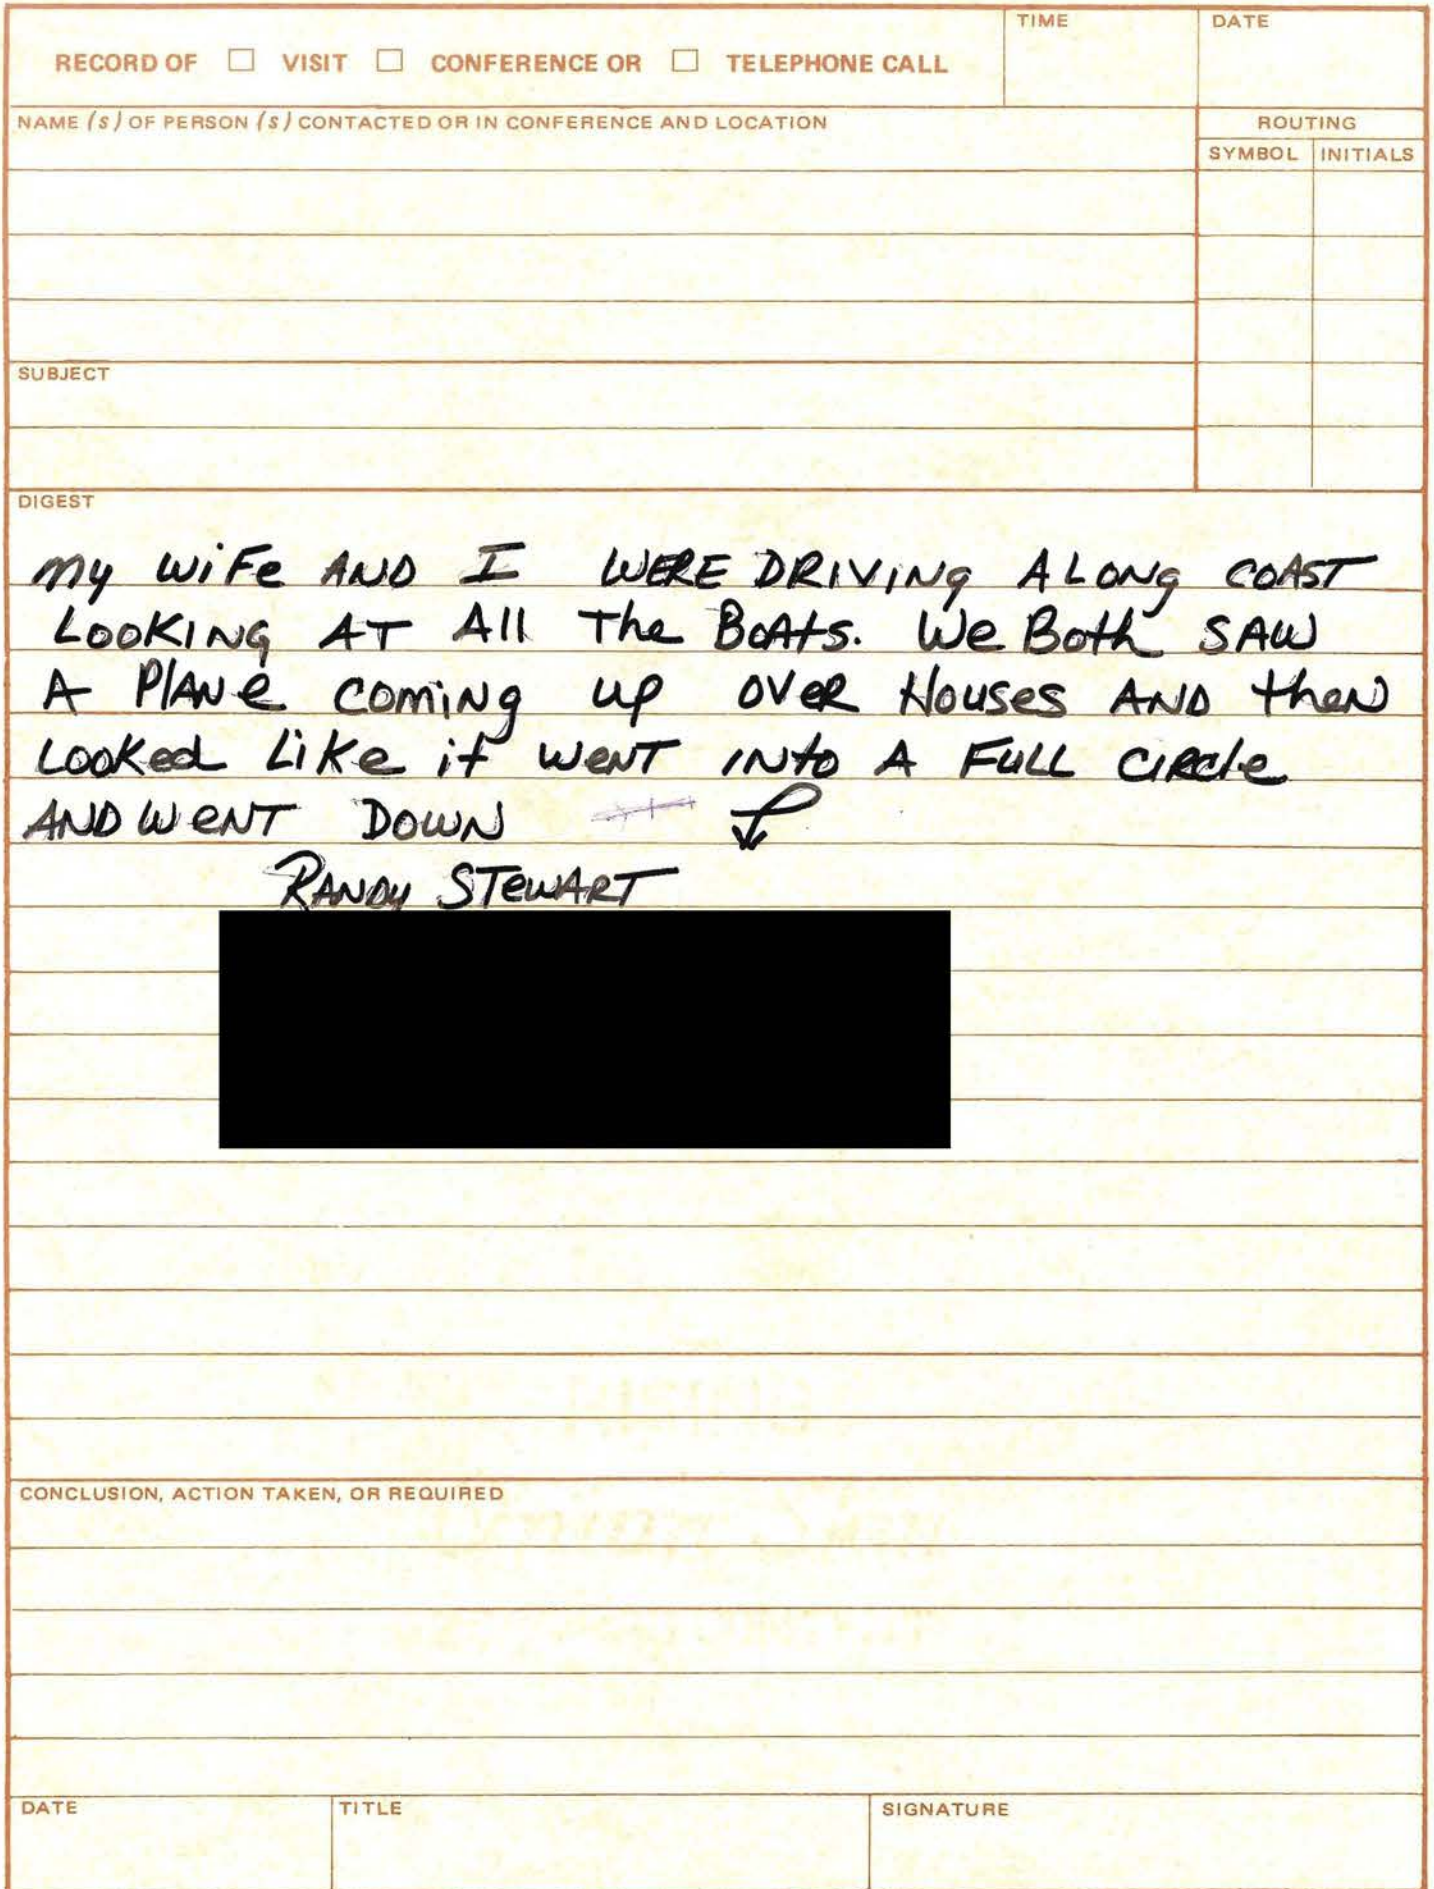 RECORD OF ☐ VISIT ☐ CONFERENCE OR ☐ TELEPHONE CALL
TIME
DATE
NAME (S) OF PERSON (S) CONTACTED OR IN CONFERENCE AND LOCATION
ROUTING
SYMBOL INITIALS
SUBJECT
DIGEST
My WiFe AND I WERE DRIVING ALONG COAST
LOOKING AT All The BoAts. We Both SAW
A PlANe coming up oveR Houses AND theN
Looked Like it weNT iNto A FULL CiRcle
AND WeNT DOWN
RANDY STewART
CONCLUSION, ACTION TAKEN, OR REQUIRED
DATE
TITLE
SIGNATURE